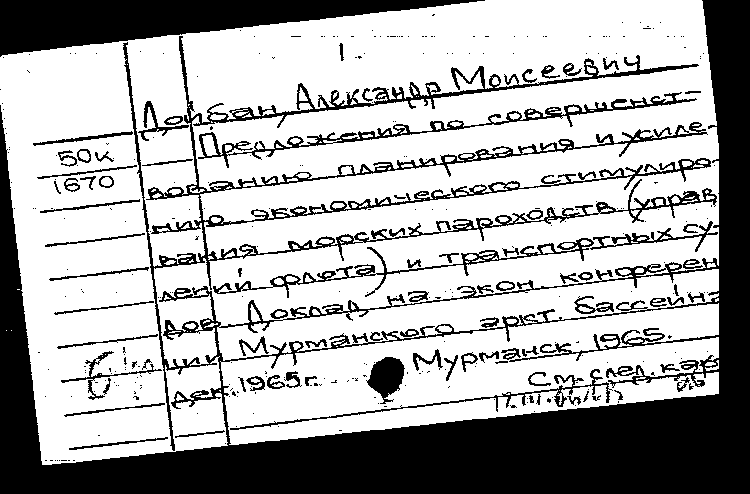 1.
Дойбан, Александр Моисеевич
50к
1670
Предложения по совершенст-
вованию планирования и усиле-
нию экономического стимулиро-
вания морских пароходств (управ
лений флота) и транспортных су-
дов. Доклад на экон. конферен
ции Мурманского аркт. бассейна
дек. 1965г. Мурманск, 1965.
См. след. кар